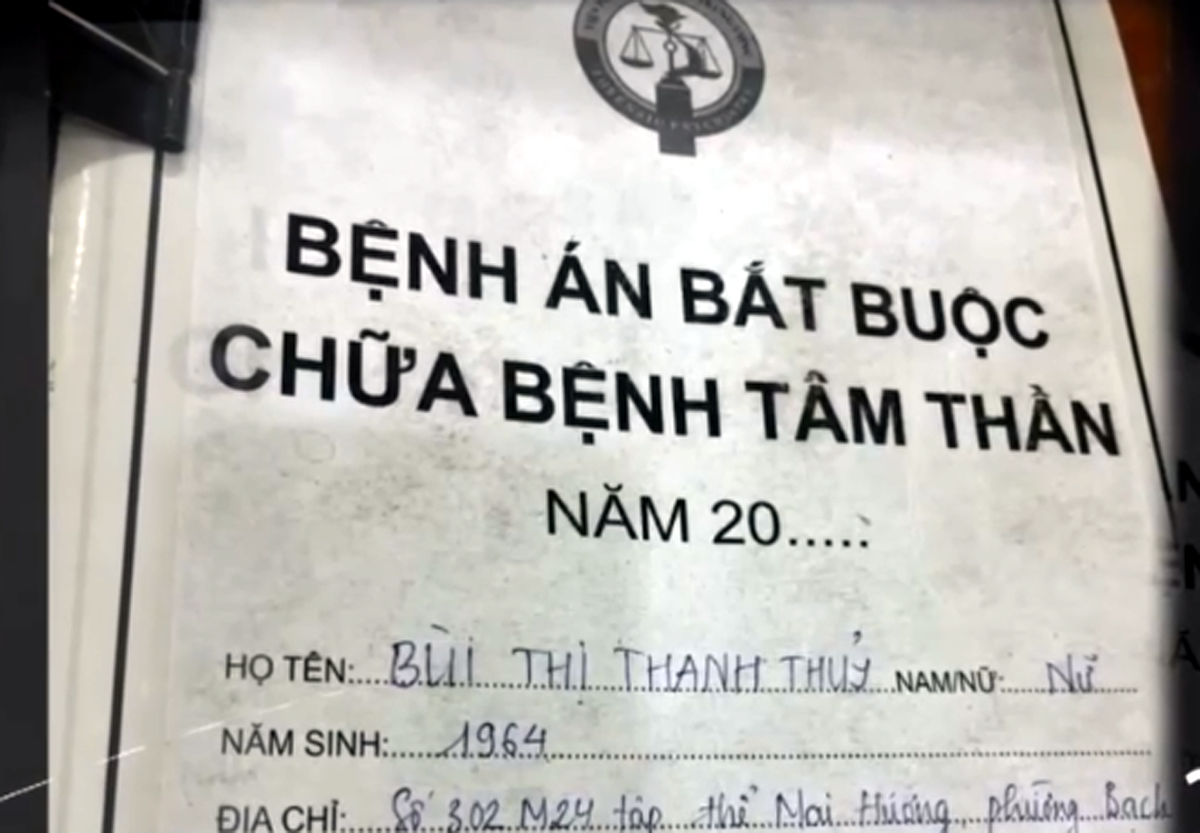 BỆNH ÁN BẮT BUỘC
CHỮA BỆNH TÂM THẦN
NĂM 20.....
HỌ TÊN:....BÙI THỊ THANH THUỶ...NAM/NỮ:....Nữ....
NĂM SINH:.....1964..........
ĐỊA CHỈ:....Số 302 M24 tập thể Mai Hương, phường Bạch